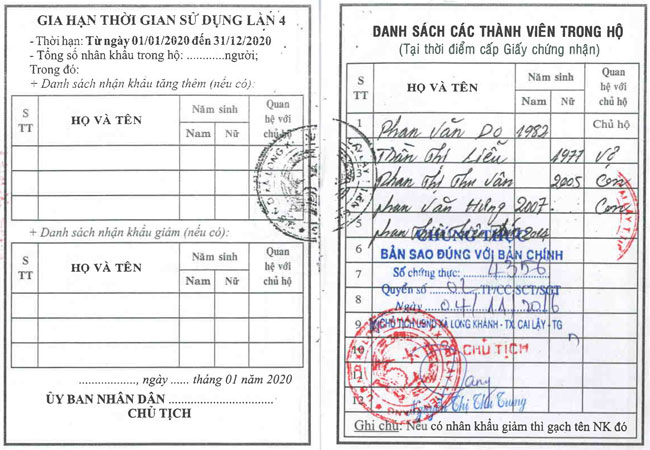 GIA HẠN THỜI GIAN SỬ DỤNG LẦN 4
- Thời hạn: Từ ngày 01/01/2020 đến 31/12/2020
- Tổng số nhân khẩu trong hộ: ............người;
Trong đó:
+ Danh sách nhận khẩu tăng thêm (nếu có):
S TT HỌ VÀ TÊN Năm sinh Quan hệ với chủ hộ
Nam Nữ
+ Danh sách nhân khẩu giảm (nếu có):
S TT HỌ VÀ TÊN Năm sinh Quan hệ với chủ hộ
Nam Nữ
................, ngày ...... tháng 01 năm 2020
ỦY BAN NHÂN DÂN
CHỦ TỊCH
DANH SÁCH CÁC THÀNH VIÊN TRONG HỘ
(Tại thời điểm cấp Giấy chứng nhận)
S TT HỌ VÀ TÊN Năm sinh Quan hệ với chủ hộ
Nam Nữ
1 Phan Văn Do 1982 Chủ hộ
Trần Thị Liễu 1977 Vợ
3 Phan Thị Thu Vân 2005 Con
phan Văn Hưng 2007 Con
5 phan
CHỨNG THỰC
6 BẢN SAO ĐÚNG VỚI BẢN CHÍNH
7 Số chứng thực: 4356
Quyển số 02 TP/CC-SCT/SGT
8 Ngày 04/11
9 CHỦ TỊCH UBND XÃ LONG KHÁNH - TX. CAI LẬY - TG
10 CHỦ TỊCH
11
12 Nguyễn Thị Thu Trung
Ghi chú: Nếu có nhân khẩu giảm thì gạch tên NK đó